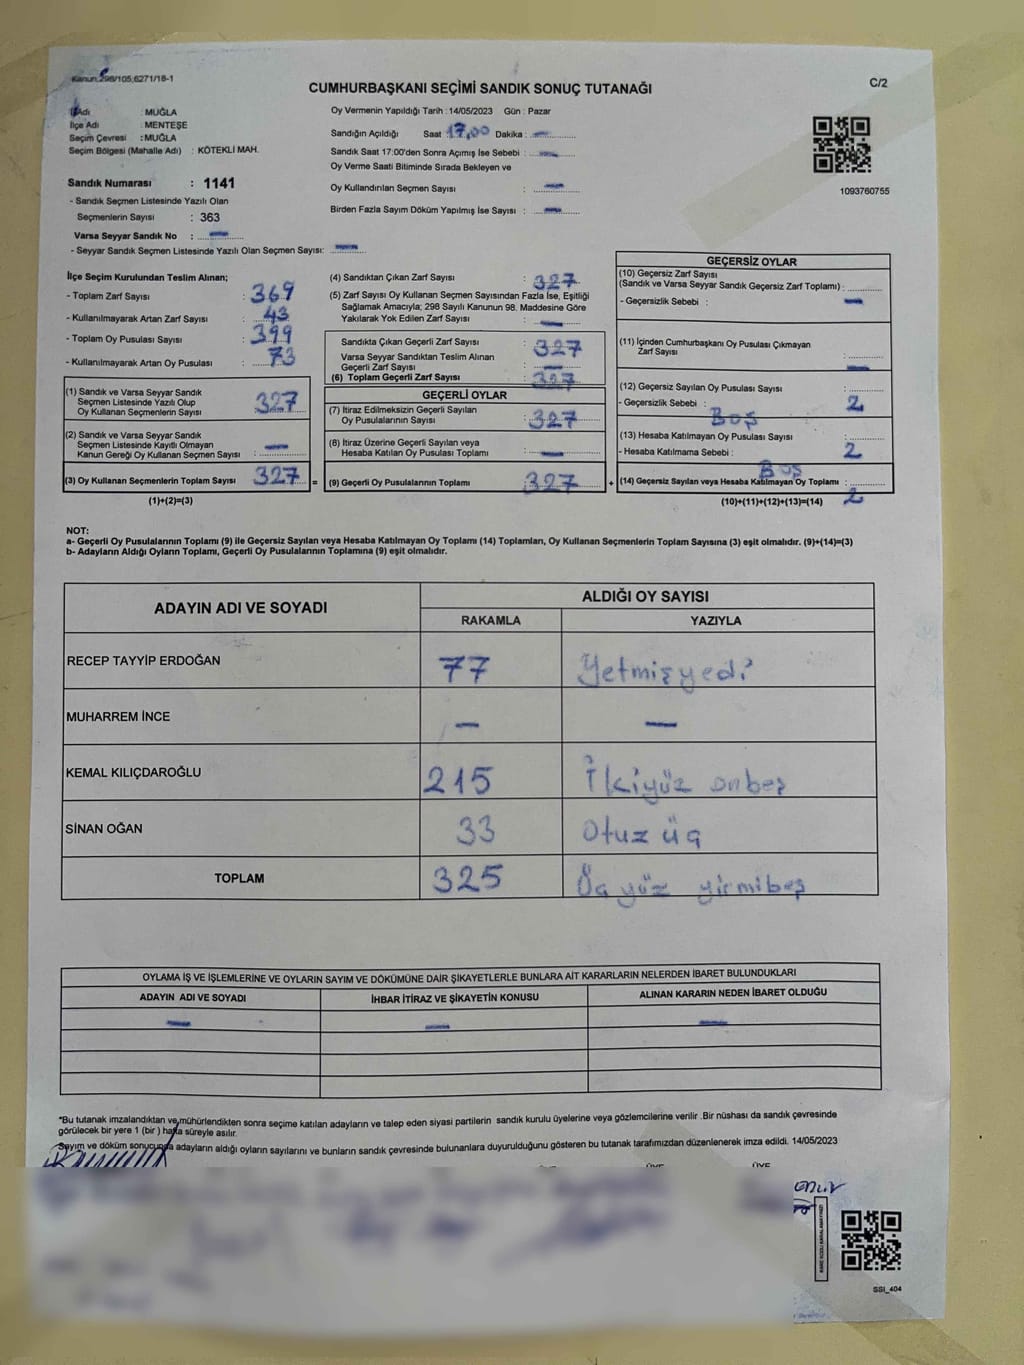 Kanun:298/105;6271/18-1
CUMHURBAŞKANI SEÇİMİ SANDIK SONUÇ TUTANAĞI
C/2
İl Adı : MUĞLA
İlçe Adı : MENTEŞE
Seçim Çevresi : MUĞLA
Seçim Bölgesi (Mahalle Adı) : KÖTEKLİ MAH.
Sandık Numarası : 1141
- Sandık Seçmen Listesinde Yazılı Olan
Seçmenlerin Sayısı : 363
Varsa Seyyar Sandık No : —
- Seyyar Sandık Seçmen Listesinde Yazılı Olan Seçmen Sayısı: —
Oy Vermenin Yapıldığı Tarih : 14/05/2023 Gün : Pazar
Sandığın Açıldığı Saat 17,00 Dakika : —
Sandık Saat 17:00'den Sonra Açımış İse Sebebi : —
Oy Verme Saati Bitiminde Sırada Bekleyen ve
Oy Kullandırılan Seçmen Sayısı : —
Birden Fazla Sayım Döküm Yapılmış İse Sayısı : —
1093760755
İlçe Seçim Kurulundan Teslim Alınan;
- Toplam Zarf Sayısı : 369
- Kullanılmayarak Artan Zarf Sayısı : 43
- Toplam Oy Pusulası Sayısı : 399
- Kullanılmayarak Artan Oy Pusulası : 73
(1) Sandık ve Varsa Seyyar Sandık
Seçmen Listesinde Yazılı Olup
Oy Kullanan Seçmenlerin Sayısı 327
(2) Sandık ve Varsa Seyyar Sandık
Seçmen Listesinde Kayıtlı Olmayan
Kanun Gereği Oy Kullanan Seçmen Sayısı : —
(3) Oy Kullanan Seçmenlerin Toplam Sayısı 327 =
(1)+(2)=(3)
(4) Sandıktan Çıkan Zarf Sayısı : 327
(5) Zarf Sayısı Oy Kullanan Seçmen Sayısından Fazla İse, Eşitliği
Sağlamak Amacıyla; 298 Sayılı Kanunun 98. Maddesine Göre
Yakılarak Yok Edilen Zarf Sayısı : —
Sandıkta Çıkan Geçerli Zarf Sayısı : 327
Varsa Seyyar Sandıktan Teslim Alınan
Geçerli Zarf Sayısı : —
(6) Toplam Geçerli Zarf Sayısı : 327
GEÇERLİ OYLAR
(7) İtiraz Edilmeksizin Geçerli Sayılan
Oy Pusulalarının Sayısı : 327
(8) İtiraz Üzerine Geçerli Sayılan veya
Hesaba Katılan Oy Pusulası Toplamı : —
(9) Geçerli Oy Pusulalarının Toplamı 327 +
GEÇERSİZ OYLAR
(10) Geçersiz Zarf Sayısı
(Sandık ve Varsa Seyyar Sandık Geçersiz Zarf Toplamı) :
- Geçersizlik Sebebi : —
(11) İçinden Cumhurbaşkanı Oy Pusulası Çıkmayan
Zarf Sayısı : —
(12) Geçersiz Sayılan Oy Pusulası Sayısı :
- Geçersizlik Sebebi : 2
Boş
(13) Hesaba Katılmayan Oy Pusulası Sayısı :
- Hesaba Katılmama Sebebi : 2
Boş
(14) Geçersiz Sayılan veya Hesaba Katılmayan Oy Toplamı :
(10)+(11)+(12)+(13)=(14) 2
NOT:
a- Geçerli Oy Pusulalarının Toplamı (9) ile Geçersiz Sayılan veya Hesaba Katılmayan Oy Toplamı (14) Toplamları, Oy Kullanan Seçmenlerin Toplam Sayısına (3) eşit olmalıdır. (9)+(14)=(3)
b- Adayların Aldığı Oyların Toplamı, Geçerli Oy Pusulalarının Toplamına (9) eşit olmalıdır.
ADAYIN ADI VE SOYADI ALDIĞI OY SAYISI
RAKAMLA YAZIYLA
RECEP TAYYİP ERDOĞAN 77 Yetmişyedi
MUHARREM İNCE — —
KEMAL KILIÇDAROĞLU 215 İkiyüz onbeş
SİNAN OĞAN 33 Otuz üç
TOPLAM 325 Üç yüz yirmibeş
OYLAMA İŞ VE İŞLEMLERİNE VE OYLARIN SAYIM VE DÖKÜMÜNE DAİR ŞİKAYETLERLE BUNLARA AİT KARARLARIN NELERDEN İBARET BULUNDUKLARI
ADAYIN ADI VE SOYADI İHBAR İTİRAZ VE ŞİKAYETİN KONUSU ALINAN KARARIN NEDEN İBARET OLDUĞU
— — —
*Bu tutanak imzalandıktan ve mühürlendikten sonra seçime katılan adayların ve talep eden siyasi partilerin sandık kurulu üyelerine veya gözlemcilerine verilir .Bir nüshası da sandık çevresinde
görülecek bir yere 1 (bir ) hafta süreyle asılır.
Sayım ve döküm sonucunda adayların aldığı oyların sayılarını ve bunların sandık çevresinde bulunanlara duyurulduğunu gösteren bu tutanak tarafımızdan düzenlenerek imza edildi. 14/05/2023
ÜYE ÜYE
SSI_404